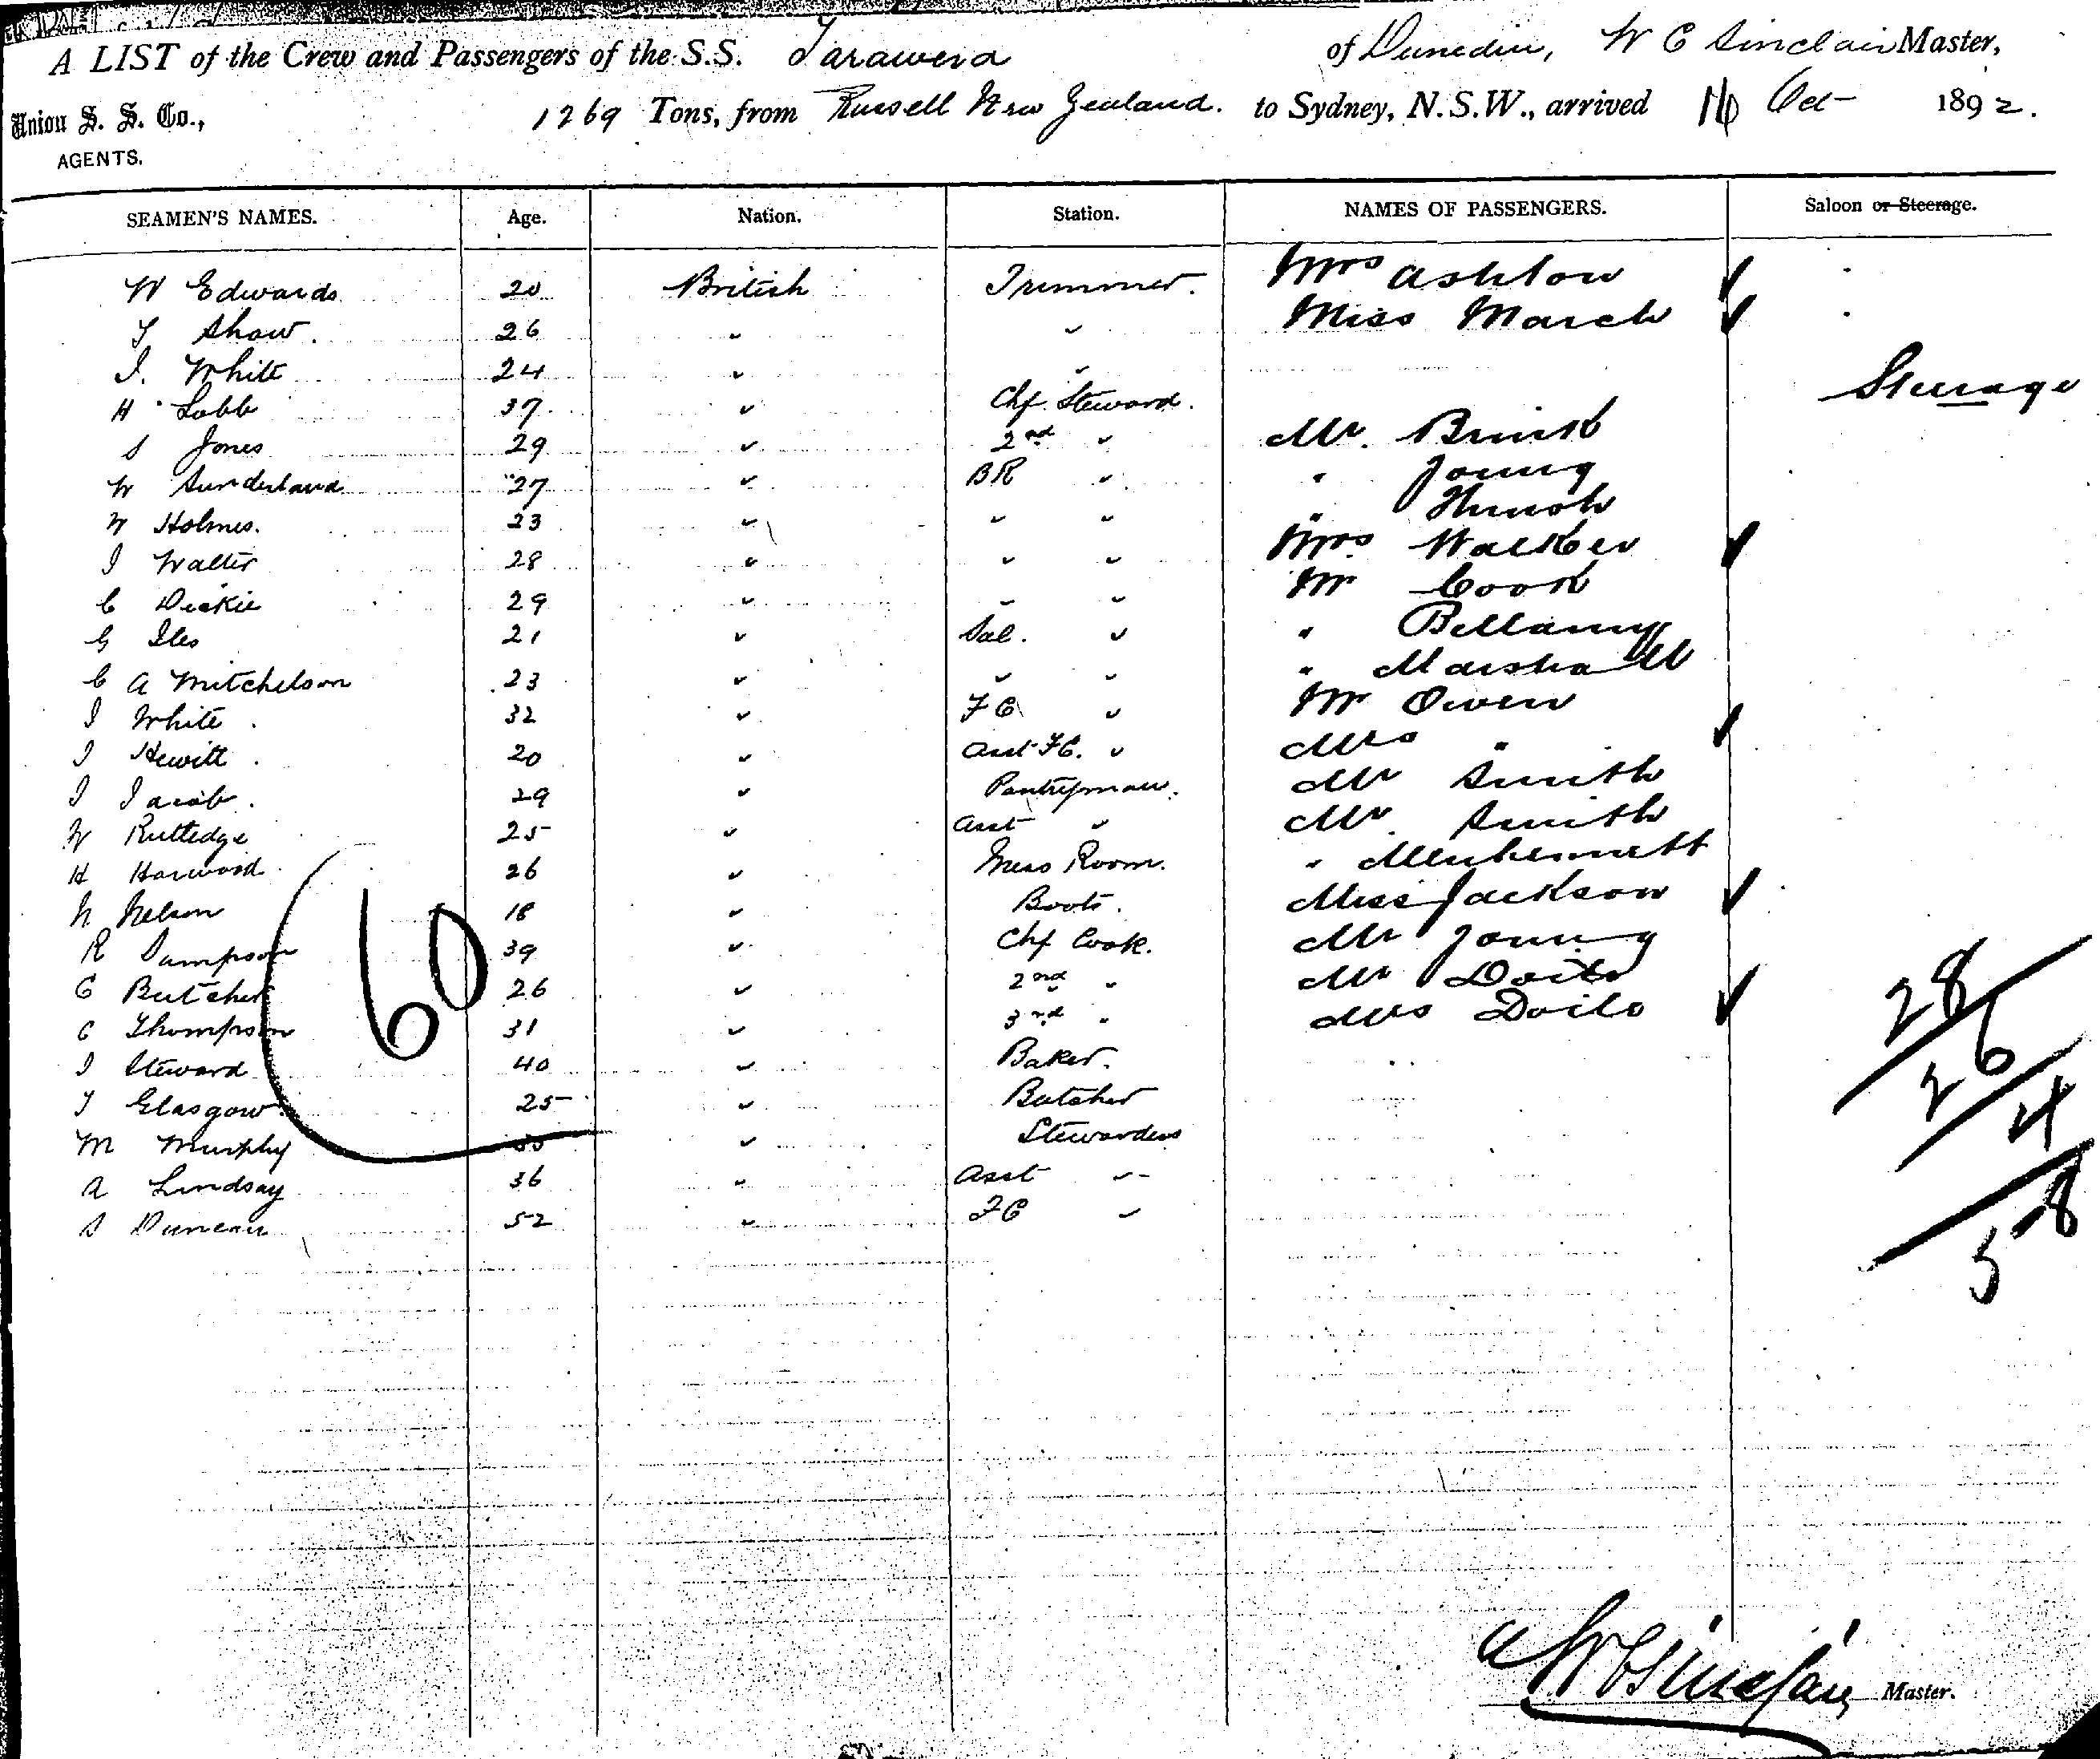 A LIST of the Crew and Passengers of the S.S. Tarawera of Dunedin, W C Sinclair Master,
Union S. S. Co., 1269 Tons, from Russell New Zealand. to Sydney, N.S.W., arrived Oct 1892.
AGENTS.
SEAMEN'S NAMES. Age. Nation. Station. NAMES OF PASSENGERS. Saloon or Steerage.
W Edwards 20 British Trimmer. Mrs Ashton ✓
T Shaw. 26 " " Miss March ✓
J. White 24 " "
H Lobb 37 " Chf. Steward. Steerage
S Jones 29 " 2nd " Mr.
W Sunderland 27 " BR " " Young
W Holmes. 23 " " " "
J Walter 28 " " " Mrs Walker ✓
C Dickie 29 " " " Mr Cook
G Iles 21 " Sal. " " Bellamy
C A Mitchelson 23 " " " " Marshall
J White. 32 " F C " Mr Owen
J Hewitt. 20 " Asst F C. " Mrs " ✓
J Jacob. 29 " Pantryman. Mr Smith
W Rutledge 25 " Asst " Mr. Smith
H Harwood 26 " Mess Room. " Menhennett
N Nelson 18 " Boots. Miss Jackson ✓
R Sampson 39 " Chf Cook. Mr Young
G Butcher 26 " 2nd " Mr Doilo
C Thompson 31 " 3rd " Mrs Doilo ✓
J Steward 40 " Baker.
T Glasgow 25 " Butcher
M Murphy " Stewardess
A Lindsay 36 " Asst "
S Duncan 52 " F C "
60
28
26
4
58
W C Sinclair Master.